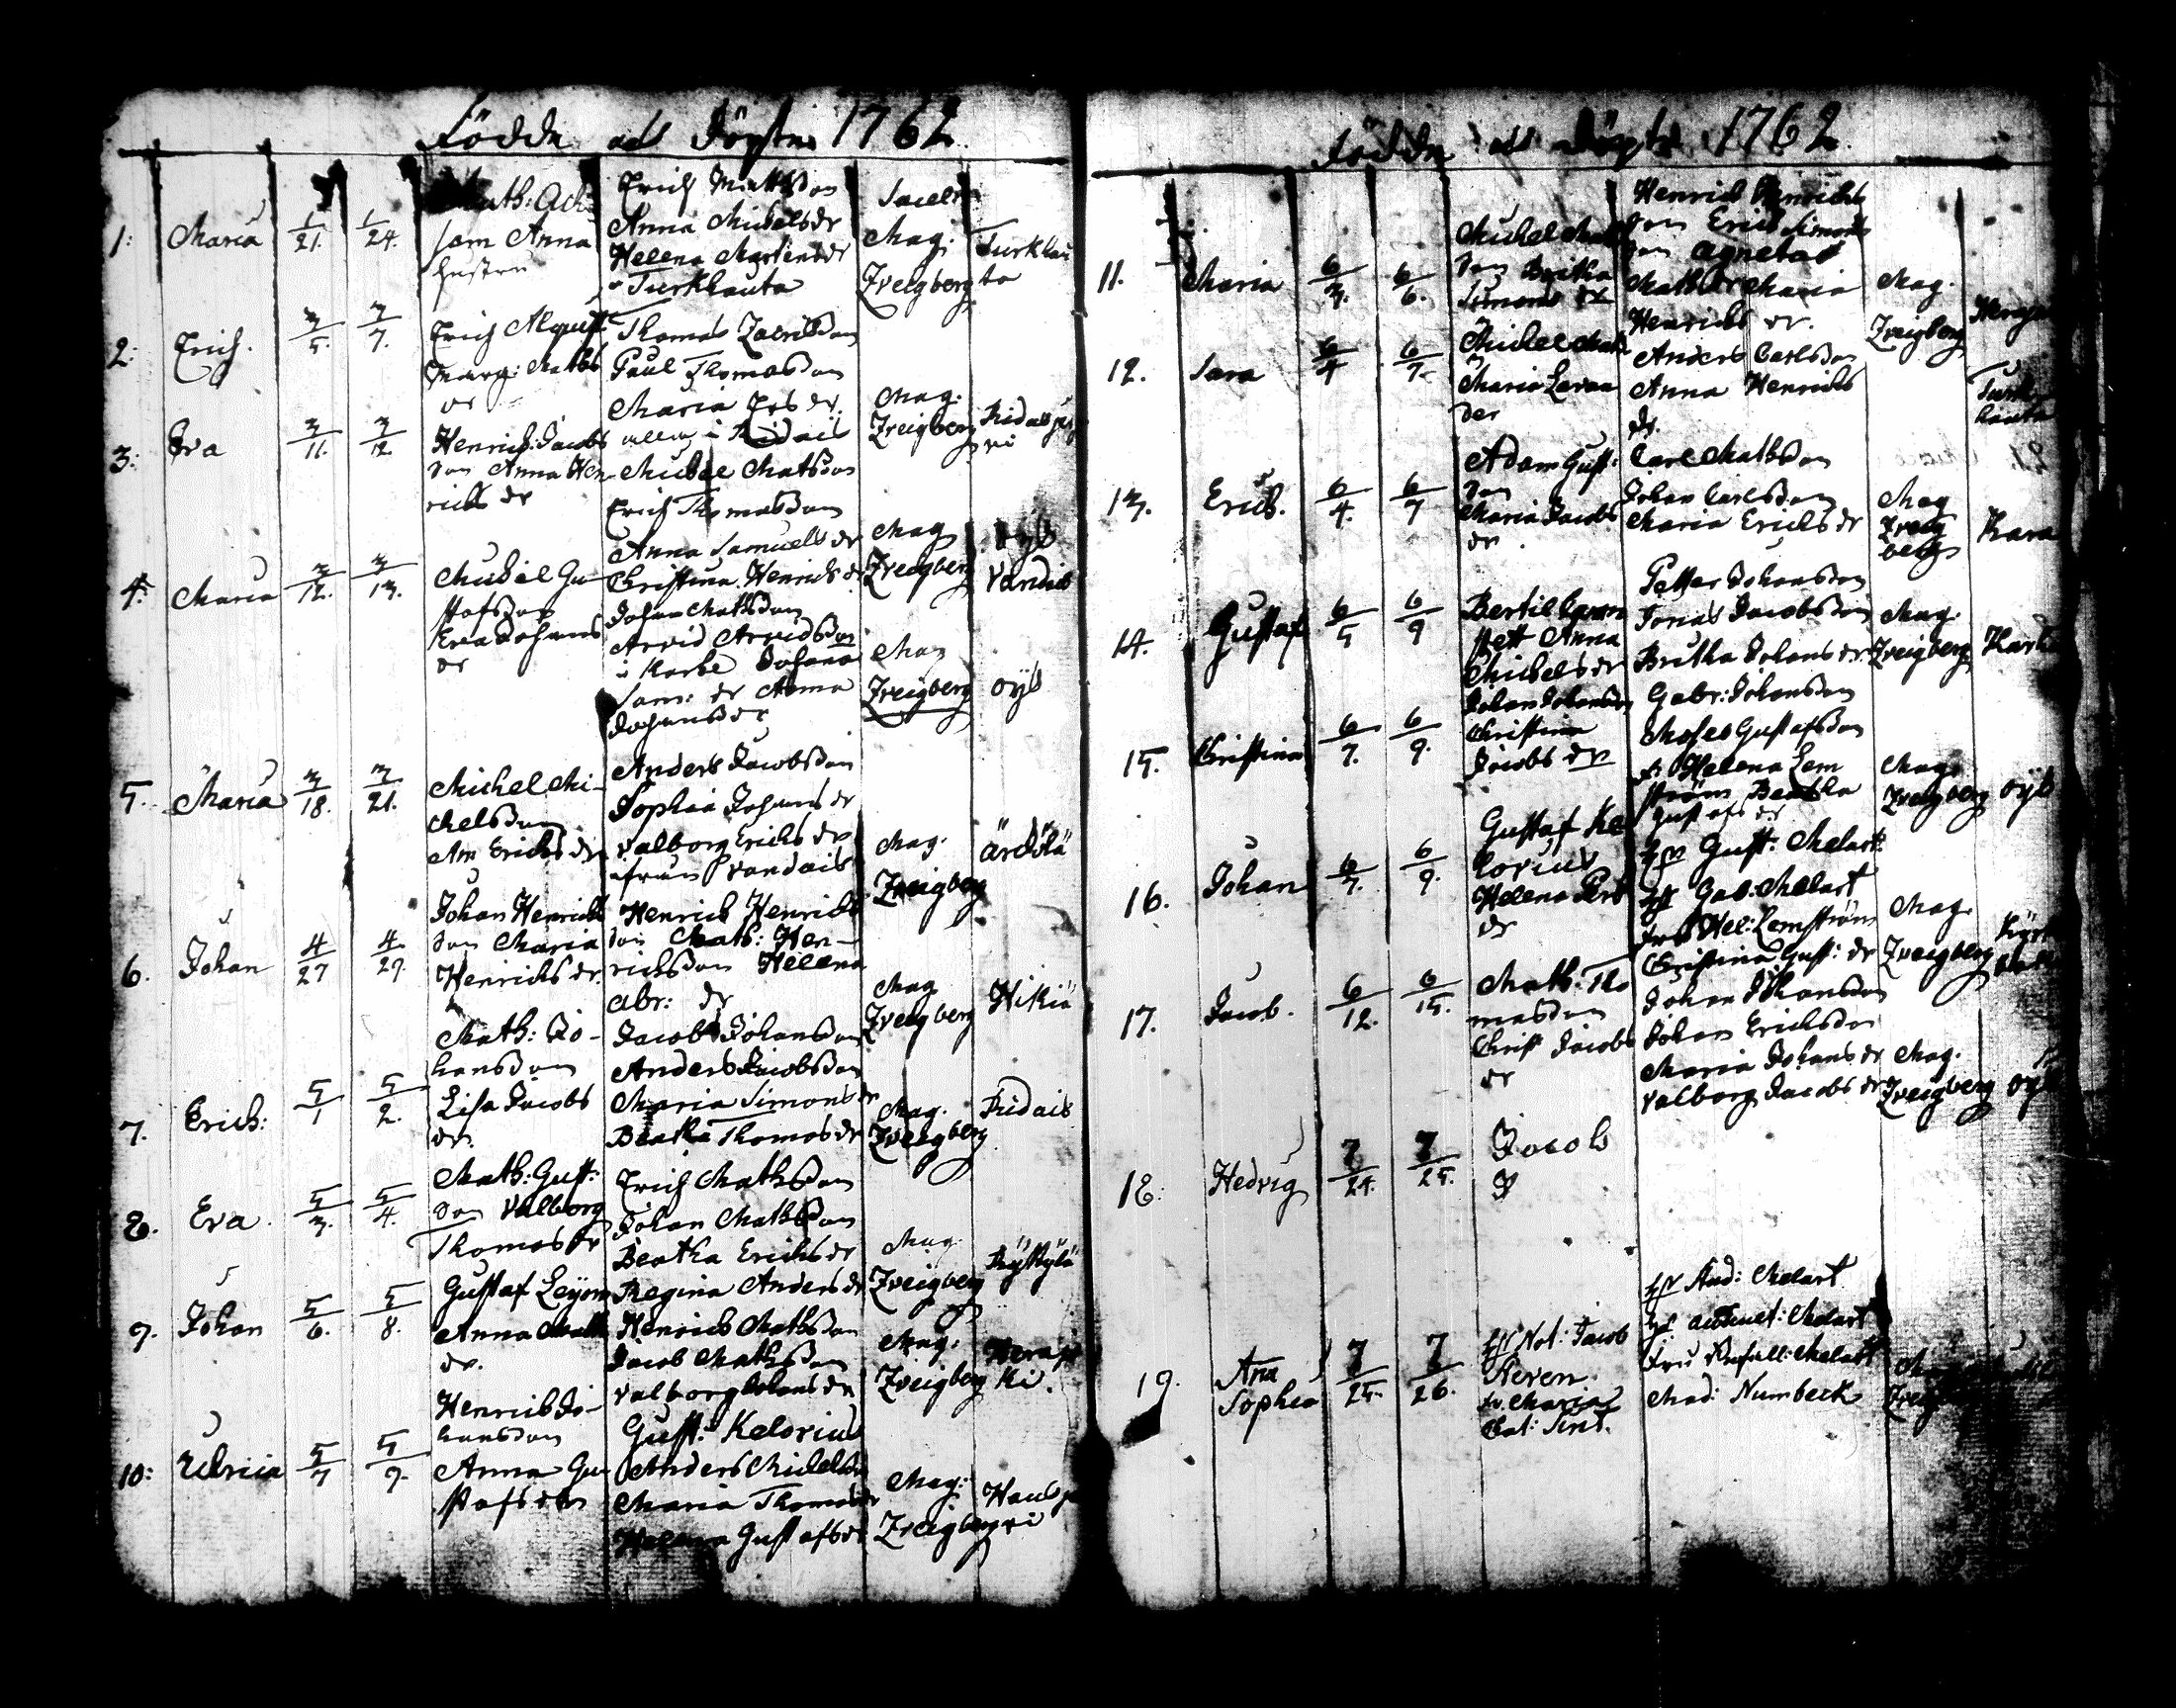 Födde och Döpte 1762
1: Maria 1/21. 1/24. Math: Ack-
sam Anna
hustru
Erich Mattsson
Anna Michelsdr
Helena Mårtensdr
Turkhauta
Mag:
Zveigberg
Turkhau
ta
2: Erich. 3/5. 3/7. Erich Alquist
Marg: Matts
dr
Thomas
Paul Thomasson
Maria Ers dr.
Mag:
Zveigberg
3: Eva 3/11. 3/12. Henrich Jacobs
son Anna Hen
richs dr
Michel Matsson
Erich Thomasson
Anna Samuels dr
Christina Henrichs dr
Mag
Zveigberg
4: Maria 3/12. 3/13. Michel Gu-
stafsson
Eva Johans
dr
Johan Mattsson
Arvid Arvidsson
i Karhe Johana
Sam: dr Anna
Johansdr
Mag
Zveigberg
oyk
5. Maria 3/18. 3/21. Michel Mi-
chelsson
Ann Erichs dr
Anders Jacobsson
Sophia Johans dr
Valborg Erichs dr
ifrån Vandais
Mag.
Zveigberg
6. Johan 4/27 4/29. Johan Henrichs
son Maria
Henrichs dr.
Henrich Henrichs
son Math: Hen-
richsson Helena
Abr: dr
Mag
Zveigberg
Hikiä
7. Erich: 5/1 5/2. Math: Jo-
hansson
Lisa Jacobs
dr.
Jacob Johansson
Anders Jacobsson
Maria Simons dr
Beatha Thomas dr
Mag.
Zveigberg
Ridais
8. Eva. 5/3. 5/4. Math: Gust:
son Valborg
Thomas dr
Erich Mathsson
Johan Mathsson
Beatha Erichs dr
Regina Anders dr
Mag.
Zveigberg
Ryskylä
9. Johan 5/6. 5/8. Gustaf Leyon
Anna Math
dr.
Henrich Mathsson
Jacob Mathsson
Valborg Johans dr
Mag.
Zveigberg
Herajo
ki.
10: Ulrica 5/7 5/9. Henrich Jo-
hansson
Anna Gu
stafs dr
Gust: Kelorius
Anders Michelsson
Maria Thomas dr
Helena Gustafs dr
Mag:
Zveigberg
Hausjä
rvi
Födde och Döpte 1762.
11. Maria 6/3. 6/6. Michel Mats
son Britha
Simons dr
Henrich Henrichs
son Erich Simons
son Agneta
Maths dr Maria
Henrichs dr.
Mag.
Zveigberg
12. Sara 6/4 6/7. Michel Mats
Maria Levan
der
Anders Carlsson
Anna Henrichs
dr.
Turk
hauta
13. Erich. 6/4. 6/7 Adam Gust:
son
Maria Jacobs
dr
Carl Mathsson
Johan Carlsson
Maria Erichs dr
Mag
Zveig
berg
Kara
14. Gustaf 6/5 6/9 Bertil
Anna
Michels dr
Petter Johansson
Jonas Jacobsson
Britha Johans dr.
Mag.
Zveigberg
15. Christina 6/7. 6/9. Johan Johansson
Christina
Jacobs dr
Gabr: Johansson
Moses Gustafsson
Helena Lem
ström Beatha
Gustafs dr
Mag.
Zveigberg
oyk
16. Johan 6/7. 6/9. Gustaf Ke
lorius
Helena Pers
dr
Hr Gust: Melart
Hr Gab: Melart
Fru Hel: Lemström
Christina Gust: dr
Mag.
Zveigberg
17. Jacob. 6/12. 6/15. Math: Tho
masson
Christ Jacobs
dr
Johan Johansson
Johan Erichsson
Maria Johans dr
Valborg Jacobs dr
Mag.
Zveigberg
oyk
18: Hedvig 7/24. 7/25. Jacob
J
19. Ana
Sophia 7/25. 7/26. Hr Not: Jacob
Steven.
Fr. Maria
Cat:
Hr And: Melart
Melart
Fru Melart
Mad: Numbeck